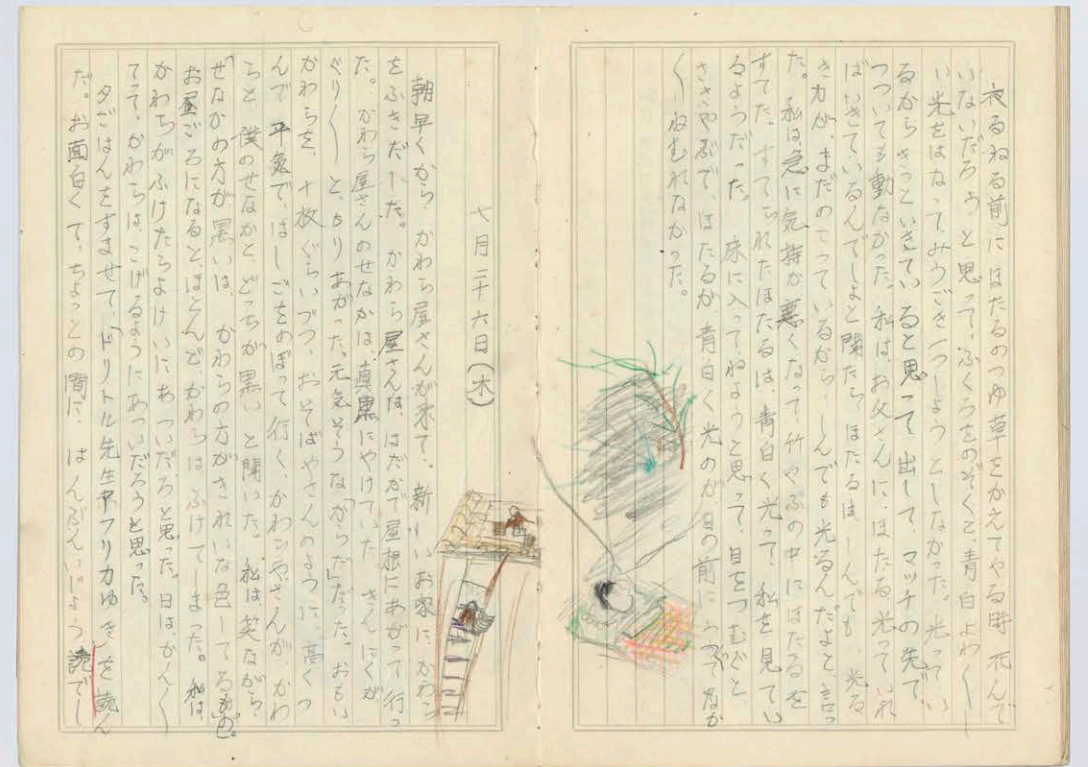 夜るねる前にほたるのつゆ草をかえてやる時 死んで
いないだろうと思って、ふくろをのぞくと、青白よわ〱し
い光をはなってみうごき一つしようとしなかった。光ってい
るからきっといきていると思って、出して、マッチの先で、
つついても動なかった。私は、お父さんに、ほたる光っていれ
ばいきているんでしょと聞たら、ほたるはしんでも 光る
き力が、まだのこっているから、しんでも光るんだよと、言っ
た。私は、急に気持が悪くなって、竹やぶの中にほたるを
すてた。すてられたほたるは、青白く光って、私を見てい
るようだった。床に入ってねようと思って、目をつむぐと、
ささやぶで、ほたるが、青白く光のが目の前に うつってなか
〱ねむれなかった。
七月二十六日(木)
朝早くから、かわら屋さんが来て、新しいお家に、かわら
をふきだした。かわら屋さんは、はだかで屋根にあがって行っ
た。かわら屋さんのせなかは、真黒にやけていた。きんにくが
ぐり〱と、もりあがった、元気そうな「からだ」だった。おもい
かわらを、十枚ぐらいづつ、おそばやさんのように、高くつ
んで平気で、はしごをのぼって行く、かわらやさんが かわ
らと、僕のせなかと、どっちが黒いと聞いた。私は、笑ながら、
せなかの方が黒いは、かわらの方がきれいな色してるもの。
お昼ごろになると、ほとんど、かわらは、ふけてしまった。私は、
かわらがふけたらよけいにあついだろと思った。日は、かん〱
てって、かわらは、こげるようにあついだろうと思った。
夕ごはんをすませて、「ドリトル先生アフリカゆき」を読ん
だ。お面白くて、ちょっとの間に、はんぶんいじょう読でし